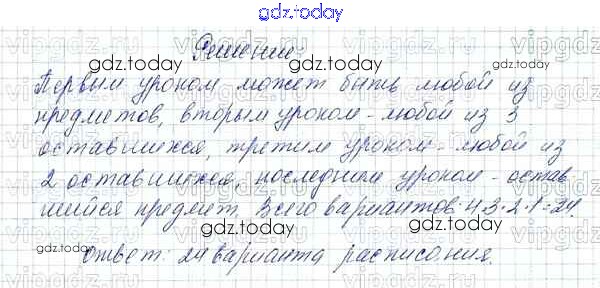 gdz.today
Решение:
gdz.today gdz.today
Первым уроком может быть любой из
предметов, вторым уроком - любой из 3
оставшихся, третим уроком - любой из
2 оставшихся, последним уроком - остав
шийся предмет. Всего вариантов: 4·3·2·1=24.
Ответ: 24 варианта расписания.
gdz.today gdz.today